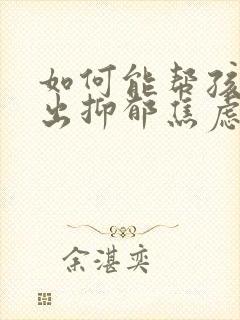 如何能帮孩
出抑郁焦虑
余湛奕